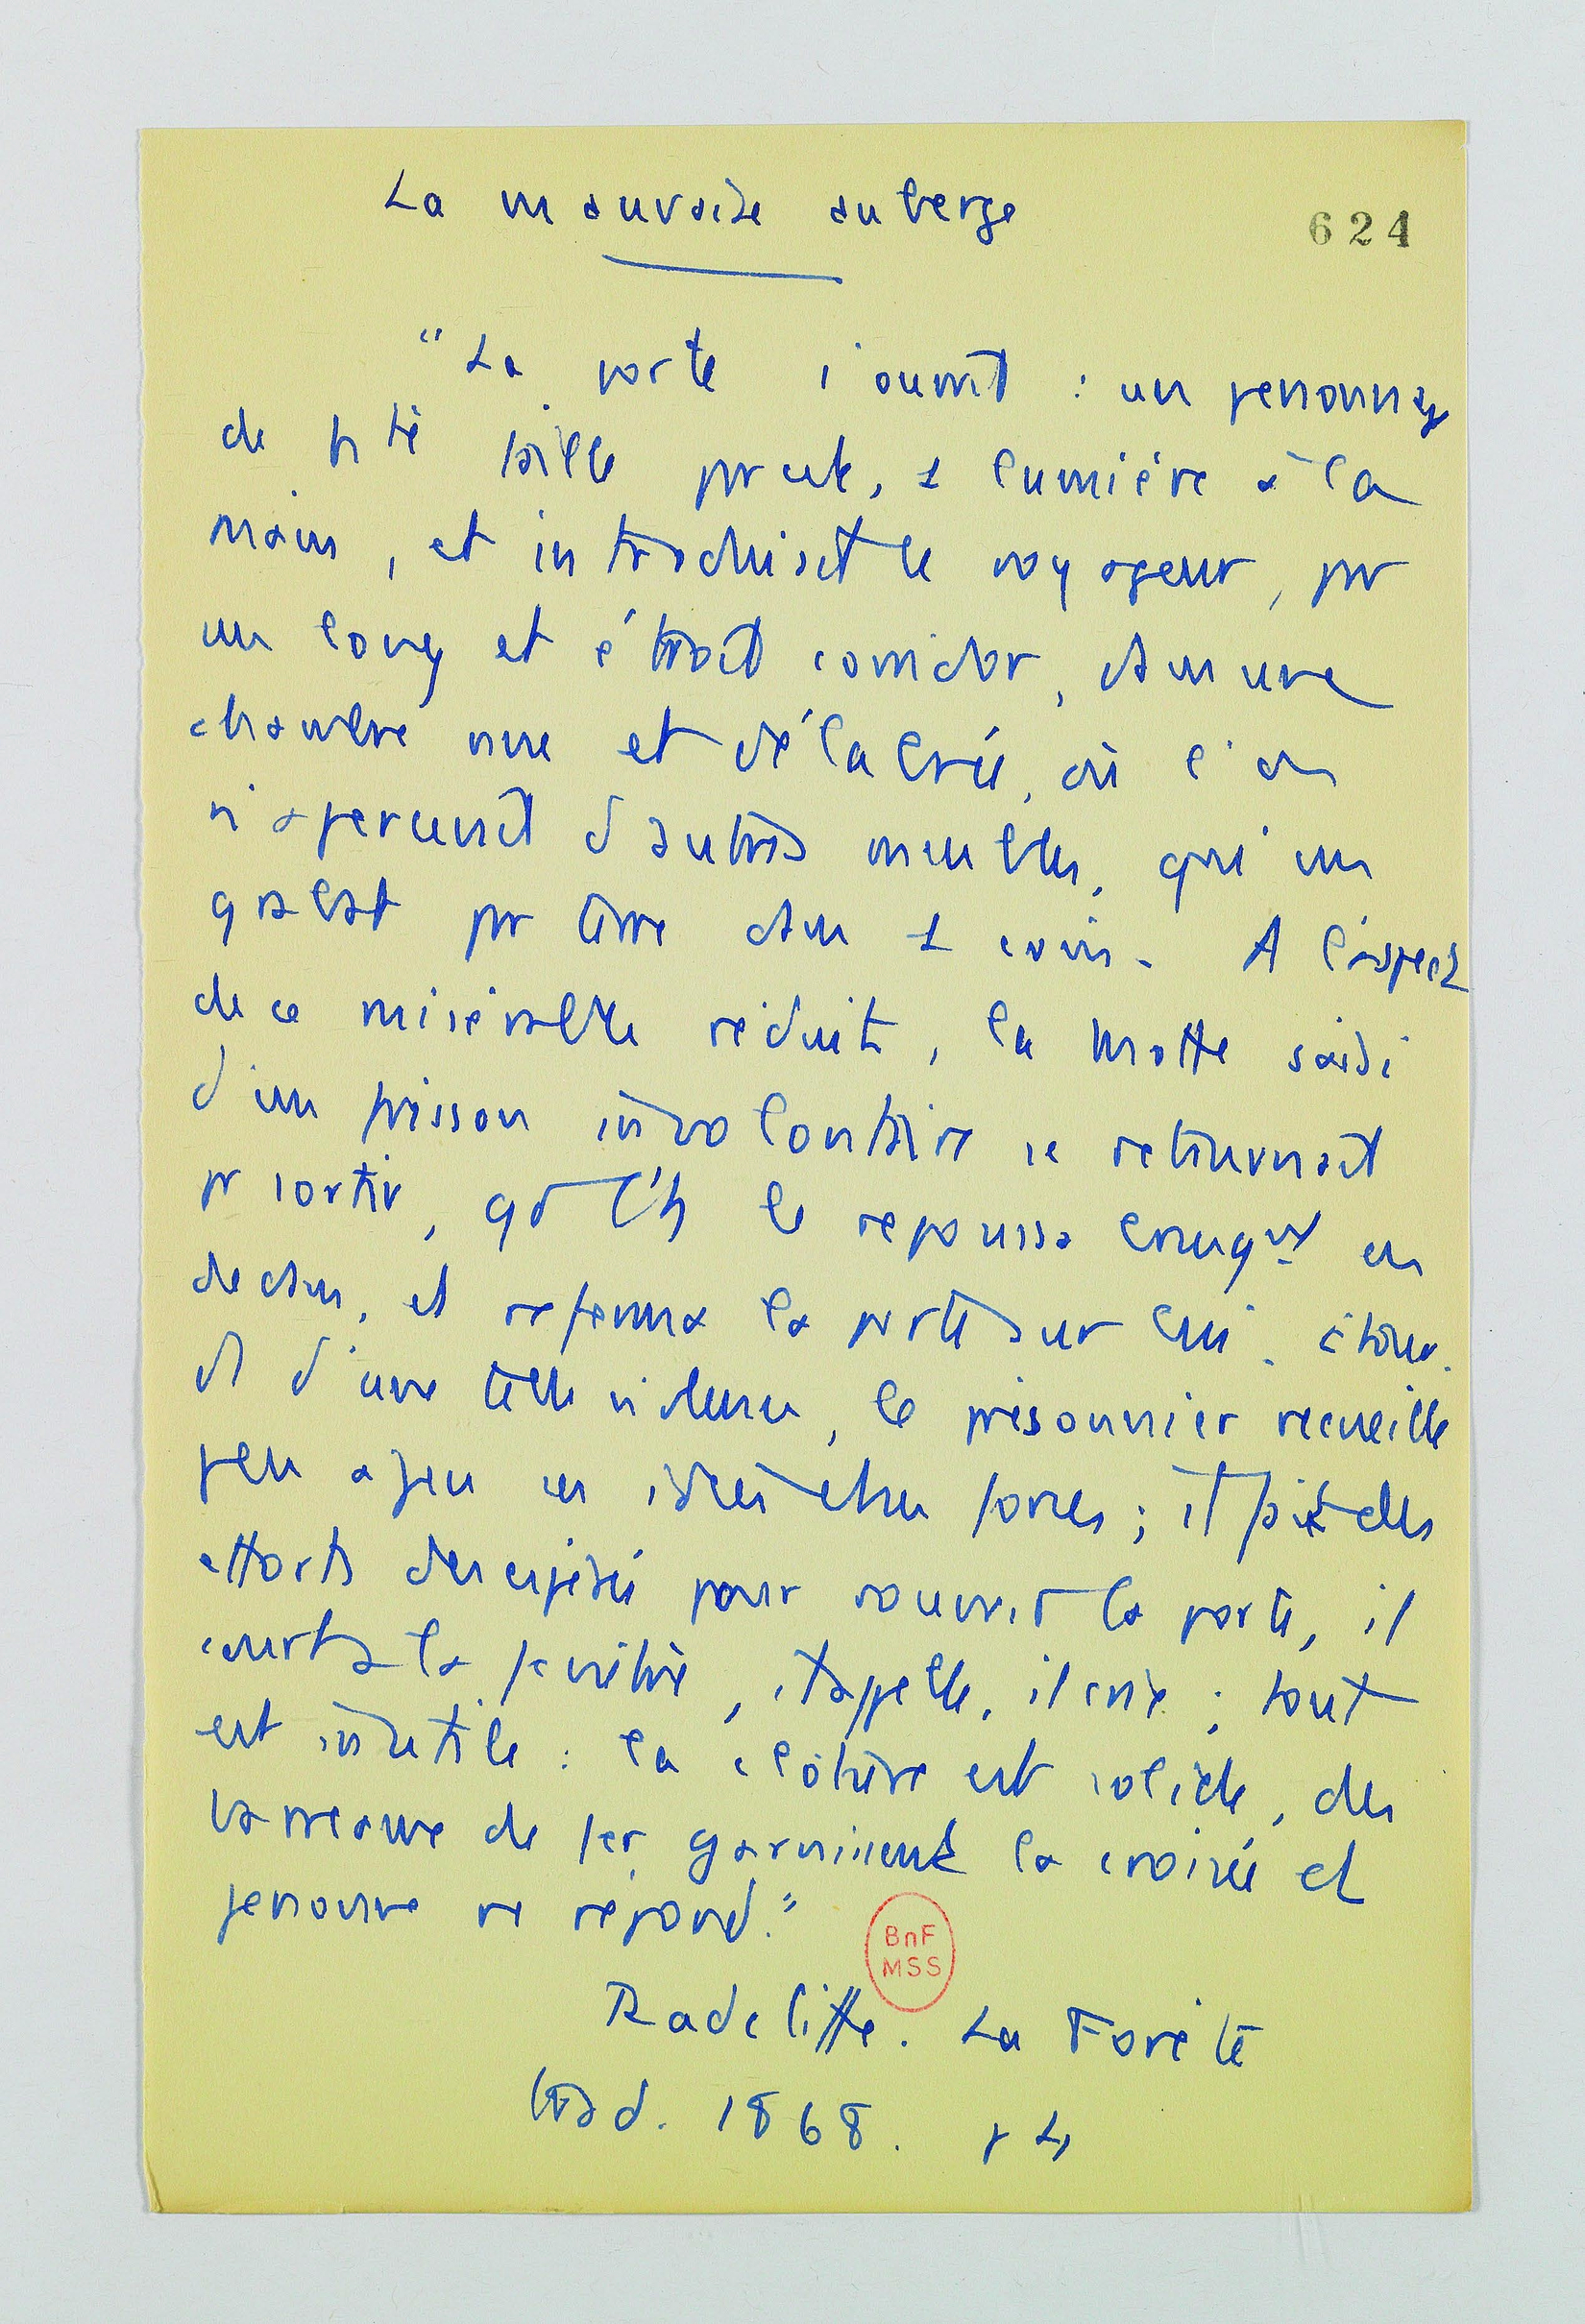 La mauvaise auberge
624
"La porte s'ouvrit : un personnage
de pte taille parut, 1 lumière à la
main, et introduisit le voyageur, par
un long et étroit corridor, dans une
chambre nue et délabrée, où l'on
n'apercevait d'autres meubles, qu'un
grabat par terre dans 1 coin. A l'aspect
de ce misérable réduit, la Motte saisi
d'un frisson involontaire se retournait
pr sortir, qd l'h le repousse brusqut en
dedans, et referma la porte sur lui. étour-
di d'une telle violence, le prisonnier recueille
peu à peu ses idées et ses forces ; il fait des
efforts désespérés pour rouvrir la porte, il
court à la fenêtre, il appelle, il crie ; tout
est inutile : la clôture est solide, des
barreaux de fer garnissent la croisée et
personne ne répond."
BnF
MSS
Radcliffe. La Forête
trad. 1868. p 4